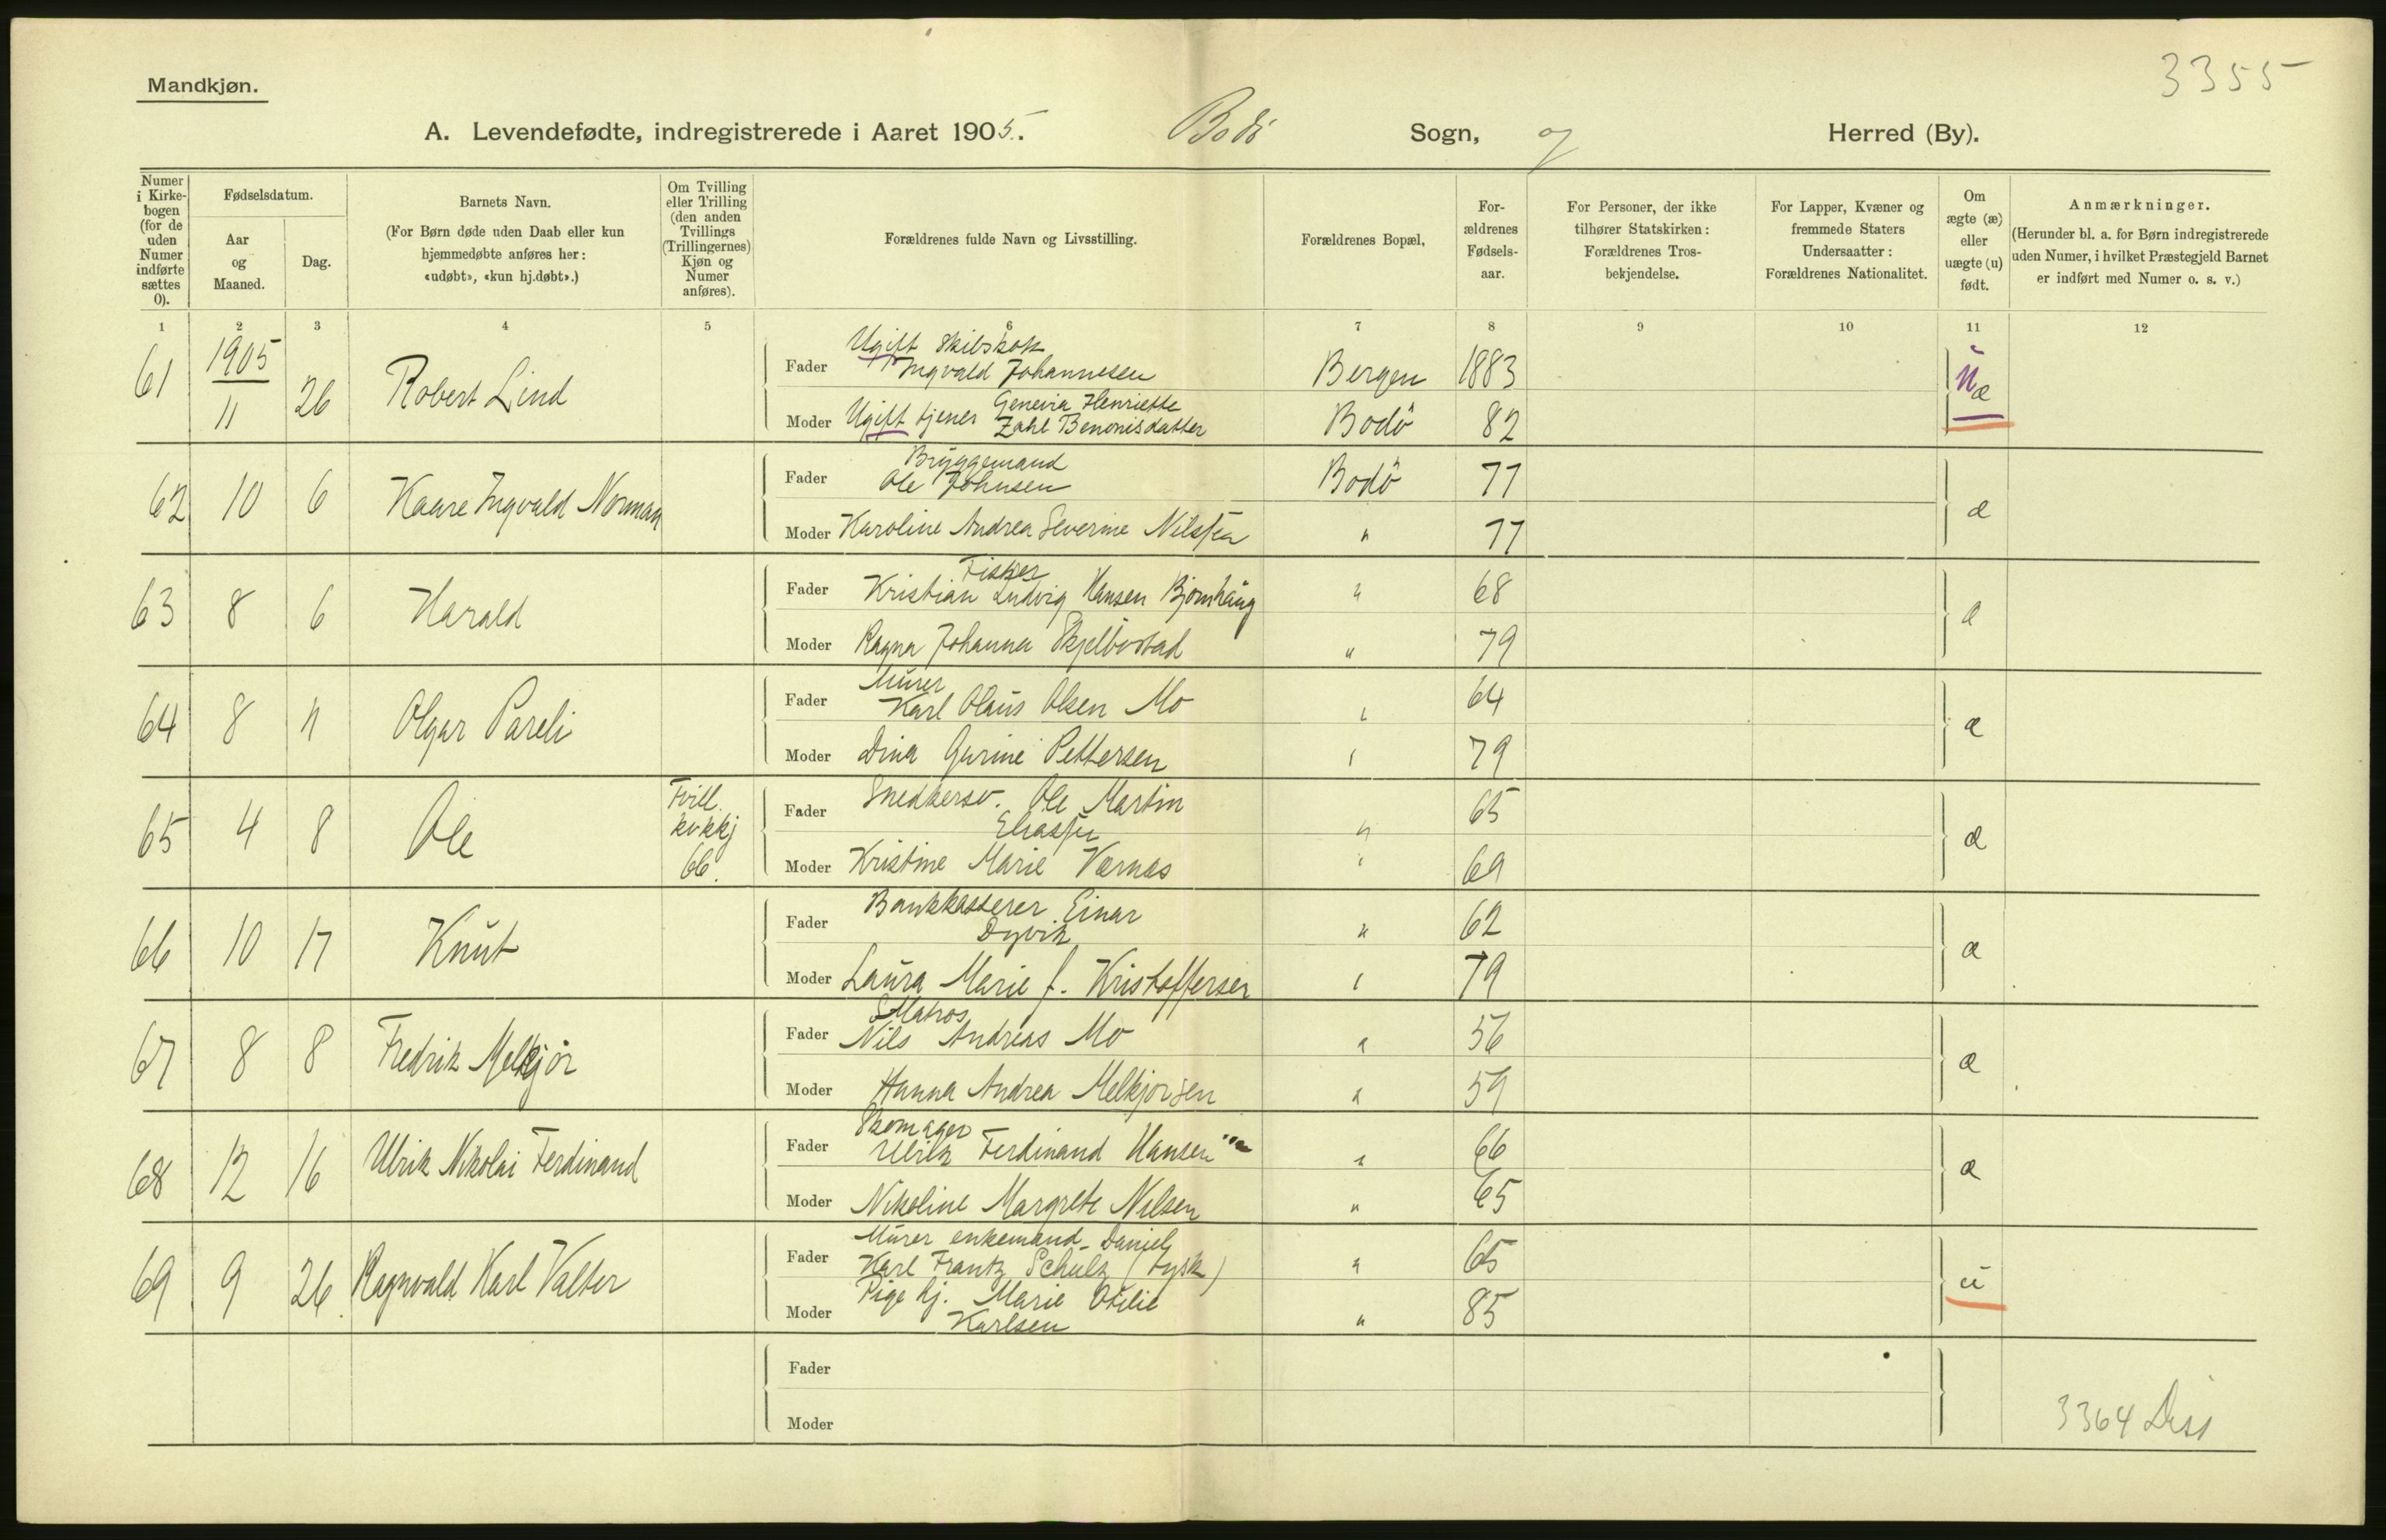 3355
Mandkjøn.
A. Levendefødte, indregistrerede i Aaret 1905. Bodö Sogn, og Herred (By).
Numer i Kirke-bogen (for de uden Numer indførte sættes 0).
Fødselsdatum.
Aar og Maaned.
Dag.
Barnets Navn.
(For Børn døde uden Daab eller kun hjemmedøbte anføres her: «udøbt», «kun hj.døbt».)
Om Tvilling eller Trilling (den anden Tvillings (Trillingernes) Kjøn og Numer anføres).
Forældrenes fulde Navn og Livsstilling.
Forældrenes Bopæl,
For-ældrenes Fødsels-aar.
For Personer, der ikke tilhører Statskirken: Forældrenes Tros-bekjendelse.
For Lapper, Kvæner og fremmede Staters Undersaatter: Forældrenes Nationalitet.
Om ægte (æ) eller uægte (u) født.
Anmærkninger.
(Herunder bl. a. for Børn indregistrerede uden Numer, i hvilket Præstegjeld Barnet er indført med Numer o. s. v.)
1 2 3 4 5 6 7 8 9 10 11 12
61 1905 11 26 Robert Lind
Fader Ugift Skibskok
Ingvald Johannesen Bergen 1883
Moder Ugift tjener Genevia Henriette
Zahl Benonisdatter Bodö 82
62 10 6 Kaare Ingvald Norman
Fader Bryggemand
Ole Johnsen Bodö 77 æ
Moder Karoline Andrea Severine Nilssen " 77
63 8 6 Harald
Fader Fisker
Kristian Ludvig Hansen Bjornhaug " 68 æ
Moder Ragna Johanna Skjelbostad " 79
64 8 11 Olgar Pareli
Fader Murer
Karl Olaus Olsen Mo " 64 æ
Moder Dina Gurine Pettersen " 79
65 4 8 Ole Tvill. kvkkj 66.
Fader Snedkersv. Ole Martin
Eliassen " 65 æ
Moder Kristine Marie Værnes " 69
66 10 17 Knut
Fader Bankkasserer Einar
Dyvik " 62 æ
Moder Laura Marie f. Kristoffersen " 79
67 8 8 Fredrik Melkjör
Fader Matros
Nils Andreas Mo " 56 æ
Moder Hanna Andrea Melkjorsen " 59
68 12 16 Ulrik Nikolai Ferdinand
Fader Skomager
Ulrik Ferdinand Hansen " 66 æ
Moder Nikoline Margrete Nilsen " 65
69 9 26 Ragnvald Karl Valter
Fader Murer enkemand Daniel
Karl Frantz Schulz (tysk) " 65 u
Moder Pige hj. Marie Otilie
Karlsen " 85
Fader
Moder
3364